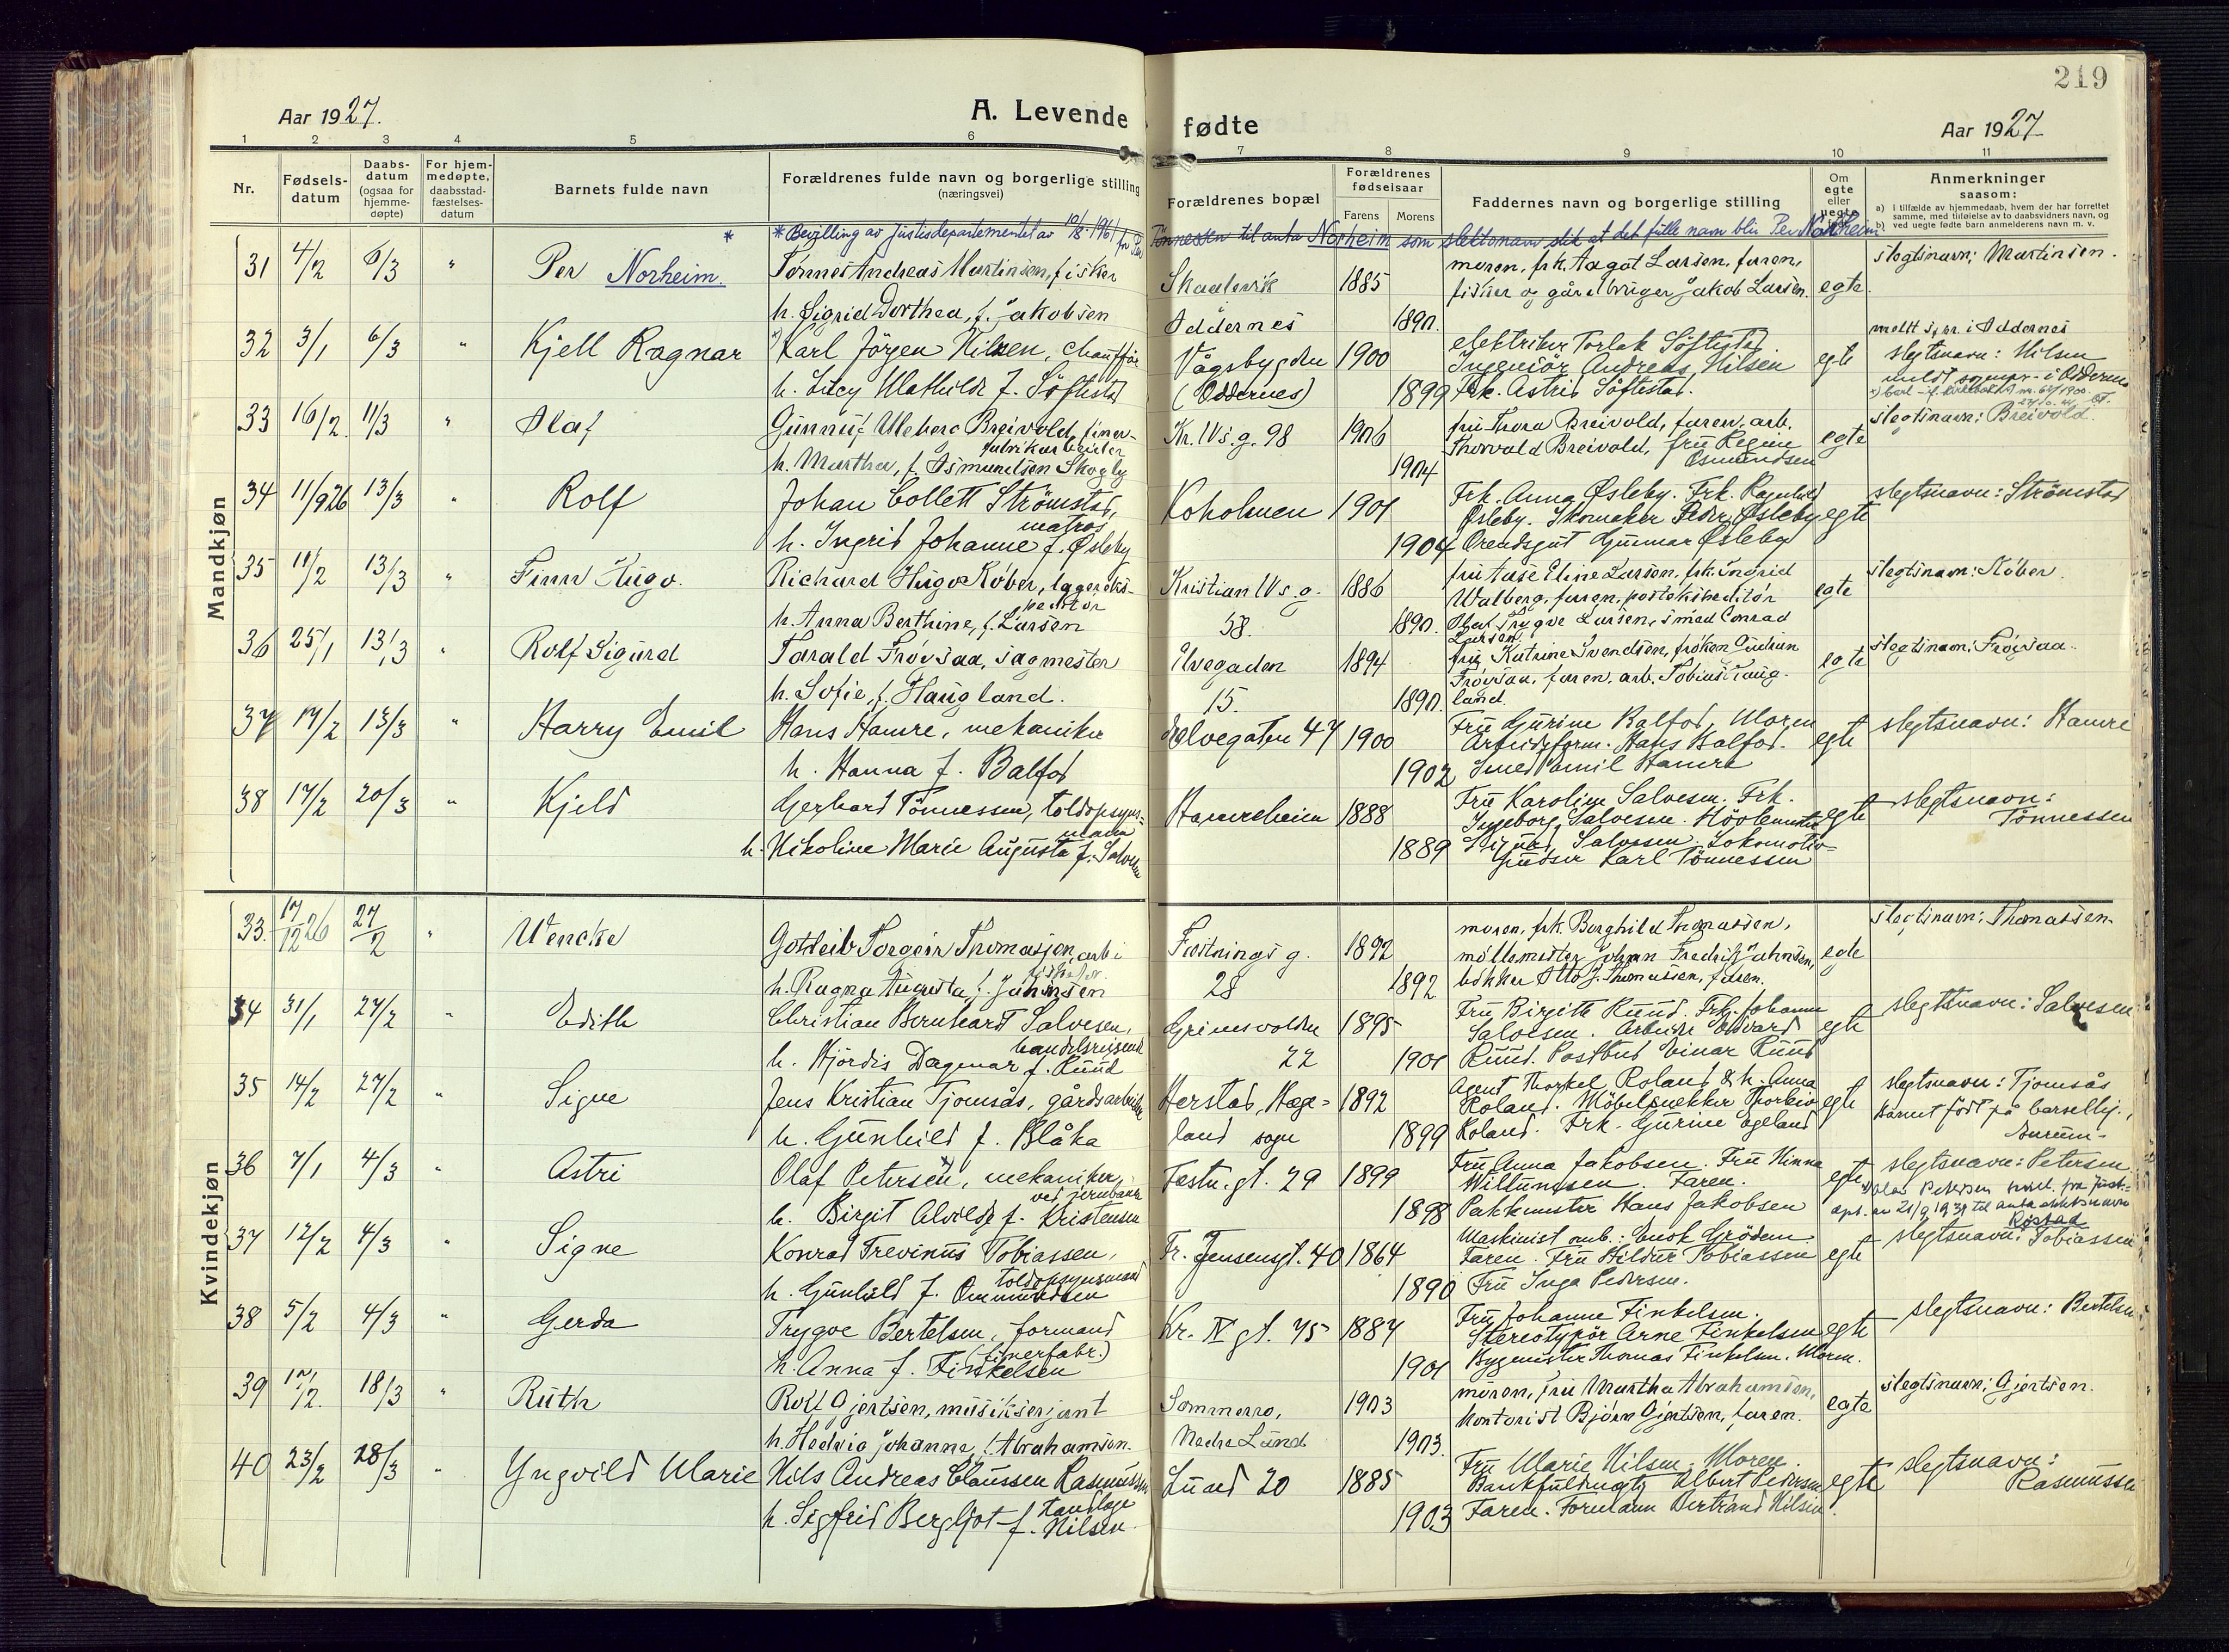 219
Aar 1927.
A. Levende fødte
Aar 1927
1 2 3 4 5 6 7 8 9 10 11
Nr.
Fødsels-datum
Daabs-datum (ogsaa for hjemme-døpte)
For hjem-medøpte, daabsstad-fæstelses-datum
Barnets fulde navn
Forældrenes fulde navn og borgerlige stilling (næringsvei)
Forældrenes bopæl
Forældrenes fødselsaar
Farens Morens
Faddernes navn og borgerlige stilling
Om egte eller uegte
Anmerkninger saasom:
a) i tilfælde av hjemmedaab, hvem der har forrettet samme, med tilføielse av to daabsvidners navn, og
b) ved uegte fødte barn anmelderens navn m. v.
* * Bevilling av Justisdepartementet av 10/8-1961 for Per Tønnessen til anta Norheim som slektsnavn slik at det fulle navn blir Per Norheim
Mandkjøn
31 4/2 6/3 " Per Norheim. Tønnes Andreas Martinsen, fisker Skaalevik 1885 moren, frk. Aagot Larsen, faren, egte. slegtsnavn: Martinsen.
fisker og gårdbruger Jakob Larsen.
h. Sigrid Dorthea, f. Jakobsen Oddernes 1890. meldt s.pr. i Oddernes
32 3/1 6/3 " Kjell Ragnar x) Karl Jörgen Nilsen, chauffør Vågsbygden 1900 elektriker Torlak Söftestad egte slegtsnavn: Nilsen
Ingeniör Andreas Nilsen
h. Lilly Mathilde f. Söftestad (Oddernes) 1899 Frk. Astrid Söftestad. meldt sognepr. i Oddernes
33 16/2 11/3 " Olaf Gunnuf Uleberg Breivold, finer- Kr. IVs. g. 98 1906 fru Thora Breivold, faren, arb. egte slegtsnavn: Breivold.
fabrikarbeider Thorvald Breivold, fru Regine
h. Martha, f. Osmundsen Skogby 1904 Osmundsen
34 11/9 26 13/3 " Rolf Johan Collett Strömstad, Koholmen 1901 Frk. Anna Øsleby. Frk. Ragnhild egte slegtsnavn: Strömstad
matros Øsleby. Skomaker Peder Øsleby
h. Ingrid Johanne f. Øsleby 1904 Gunnar Øsleby
35 11/2 13/3 " Finn Hugo. Richard Hugo Køber, lagereks- Kristian IVs. g. 1886 fru Aase Eline Larsen, frk. Ingrid egte slegtsnavn: Køber.
peditør Walberg, faren, postekspeditør
h. Anna Berthine, f. Larsen 58. 1890. Olaf Trygve Larsen, smed Conrad
Larsen
36 25/1 13/3 " Rolf Sigurd Tarald Frøysaa, sagmester Elvegaden 1894 fru Katrine Svendsen, frøken Gudrun egte slegtsnavn: Frøysaa.
Frøysaa, faren, arb. Tobias Haug-
h. Sofie, f. Haugland. 15. 1890. land.
37 17/2 13/3 " Harry Emil Hans Hamre, mekaniker Elvegaten 47 1900 Fru Gurine Balfod, Moren egte slegtsnavn: Hamre
Arbeidsform. Hans Balfod.
h. Hanna f. Balfod 1902 Smed Emil Hamre
38 17/2 20/3 " Kjeld Gerhard Tönnessen, toldopsyns- Hamreheien 1888 Fru Karoline Salvesen. Frk. egte slegtsnavn: Tönnessen
mann Ingeborg Salvesen.
h. Nikoline Marie Augusta f. Salvesen 1889 Sigurd Salvesen. Lokomotiv-
Karl Tönnessen
Kvindekjøn
33. 17/12 26 27/2 " Wencke Gotleib Torgeir Thomassen, arb. i Festnings g. 1892 moren, frk. Borghild Thomassen, egte slegtsnavn: Thomassen
møllemester Johan Fredrik Jahnsen,
h. Ragna Augusta, f. Jahnsen 28 1892 bøkker Otto J. Thomassen, faren.
34 31/1 27/2 " Edith Christian Bernhard Salvesen, Grimsvolden 1895 Fru Birgitte Ruud. Frk. Johanne egte slegtsnavn: Salvesen
handelsreisende Salvesen. Arbeider Edvard
h. Hjördis Dagmar f. Ruud 22 1901 Ruud. Postbud Einar Ruud
35 14/2 27/2 " Signe Jens Kristian Tjomsås, gårdsarbeider Herstad, Hæge- 1892 Agent Thorkel Roland & h. Anna egte slegtsnavn: Tjomsås
Roland. Möbelsnekker Barnet født på barsellhj.
h. Gunhild f. Blåka land sogn 1899 Roland. Frk. Gurine Egeland
36 7/1 4/3 " Astri Olaf Petersen x), mekaniker Festn. gt. 29 1899 Fru Anna Jakobsen. Fru Minna egte slegtsnavn: Petersen
ved jernbanen Willumsen. Faren. x) Olaf Petersen bevil. fra Just.-
h. Birgit Alvilde f. Kristensen 1898 Pakkmester Hans Jakobsen dpt. av 21/9 1931 til anta slektsnavn Røstad
37 12/2 4/3 " Signe Konrad Trevinus Tobiassen, Fr. Jensensgt. 40 1864 Maskinist omb.: Enok Grödem egte slegtsnavn: Tobiassen
toldopsynsmand Faren. Fru Hildur Tobiassen
h. Gunhild f. Ommundsen 1890 Fru Inga Pedersen.
38 5/2 4/3 " Gerda Trygve Bertelsen, formand Kr. IV gt. 75 1887 Fru Johanne Finkelsen. egte slegtsnavn: Bertelsen
(finerfabr.) Stereotypör Arne Finkelsen
h. Anna f. Finkelsen 1901 Bygmester Thomas Finkelsen. Moren.
39 17/2. 18/3 " Ruth Rolf Gjertsen, musikserjant Sommerro, 1903 moren, fru Martha Abrahamsen, egte slegtsnavn: Gjertsen.
kontorist Bjørn Gjertsen, faren.
h. Hedvig Johanne, f. Abrahamsen. Nedre Lund 1903.
40 23/2 28/3 " Yngvild Marie Nils Andreas Claussen Rasmussen Lund 20 1885 Fru Marie Nilsen. Moren. egte slegtsnavn: Rasmussen
tandlæge Bankfuldmægtig Albert Pedersen
h. Sigfrid Bergljot f. Nilsen. 1903 Faren. Formann Bertrand Nilsen.